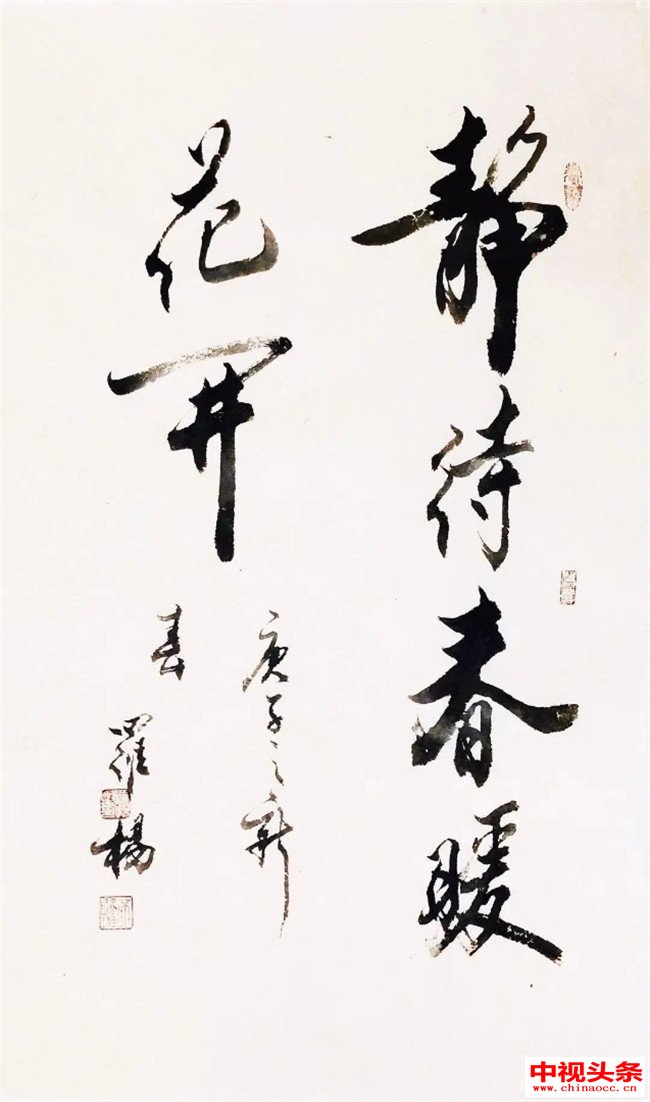 静待春暖
花开
庚子之新
春
羅楊
中视头条
www.chinaocc.cn